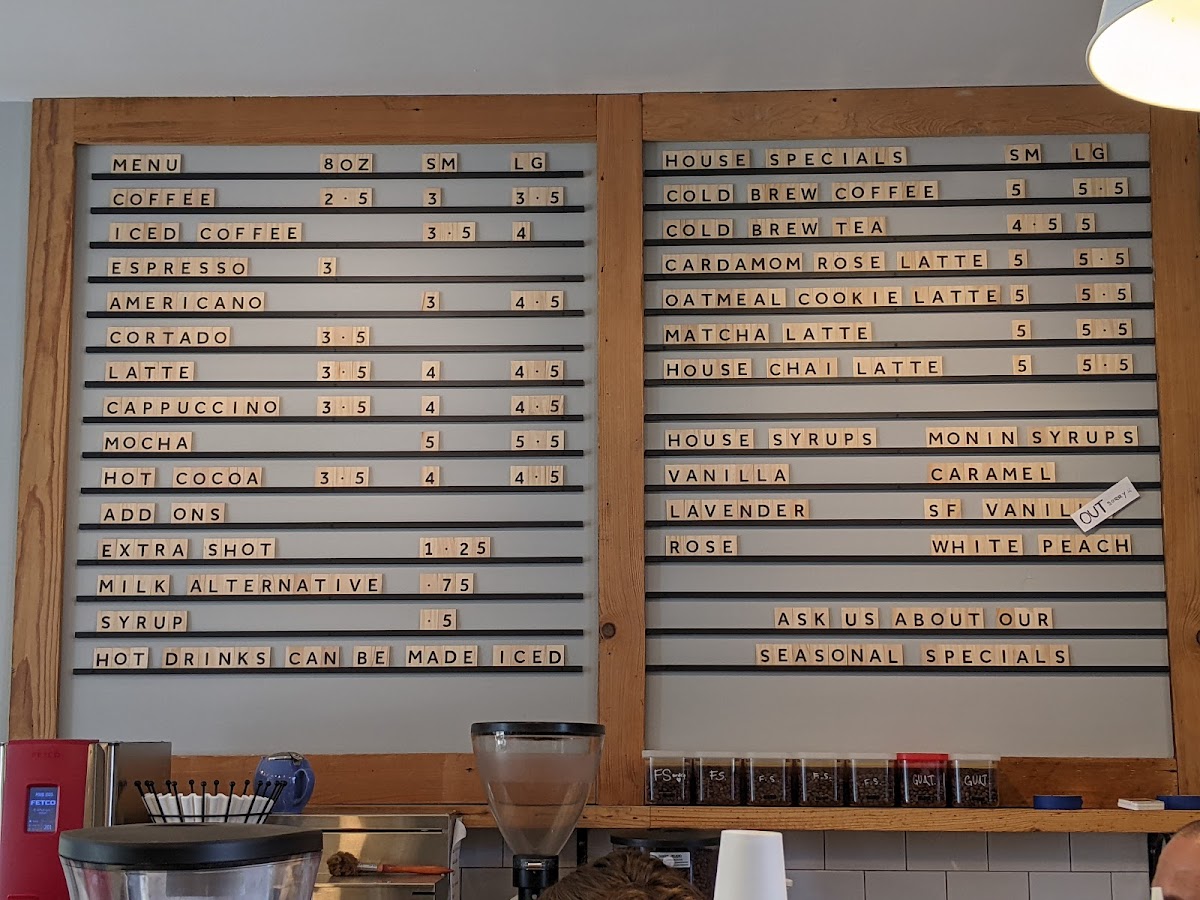 MENU 8OZ SM LG
COFFEE 2.5 3 3.5
ICED COFFEE 3.5 4
ESPRESSO 3
AMERICANO 3 4.5
CORTADO 3.5
LATTE 3.5 4 4.5
CAPPUCCINO 3.5 4 4.5
MOCHA 5 5.5
HOT COCOA 3.5 4 4.5
ADD ONS
EXTRA SHOT 1.25
MILK ALTERNATIVE .75
SYRUP .5
HOT DRINKS CAN BE MADE ICED
HOUSE SPECIALS SM LG
COLD BREW COFFEE 5 5.5
COLD BREW TEA 4.55 5
CARDAMOM ROSE LATTE 5 5.5
OATMEAL COOKIE LATTE 5 5.5
MATCHA LATTE 5 5.5
HOUSE CHAI LATTE 5 5.5
HOUSE SYRUPS MONIN SYRUPS
VANILLA CARAMEL
LAVENDER SF VANILL
OUT SORRY
ROSE WHITE PEACH
ASK US ABOUT OUR
SEASONAL SPECIALS
FETCO
FETCO
FS F.S. F.S. F.S. F.S. GUAT GUAT